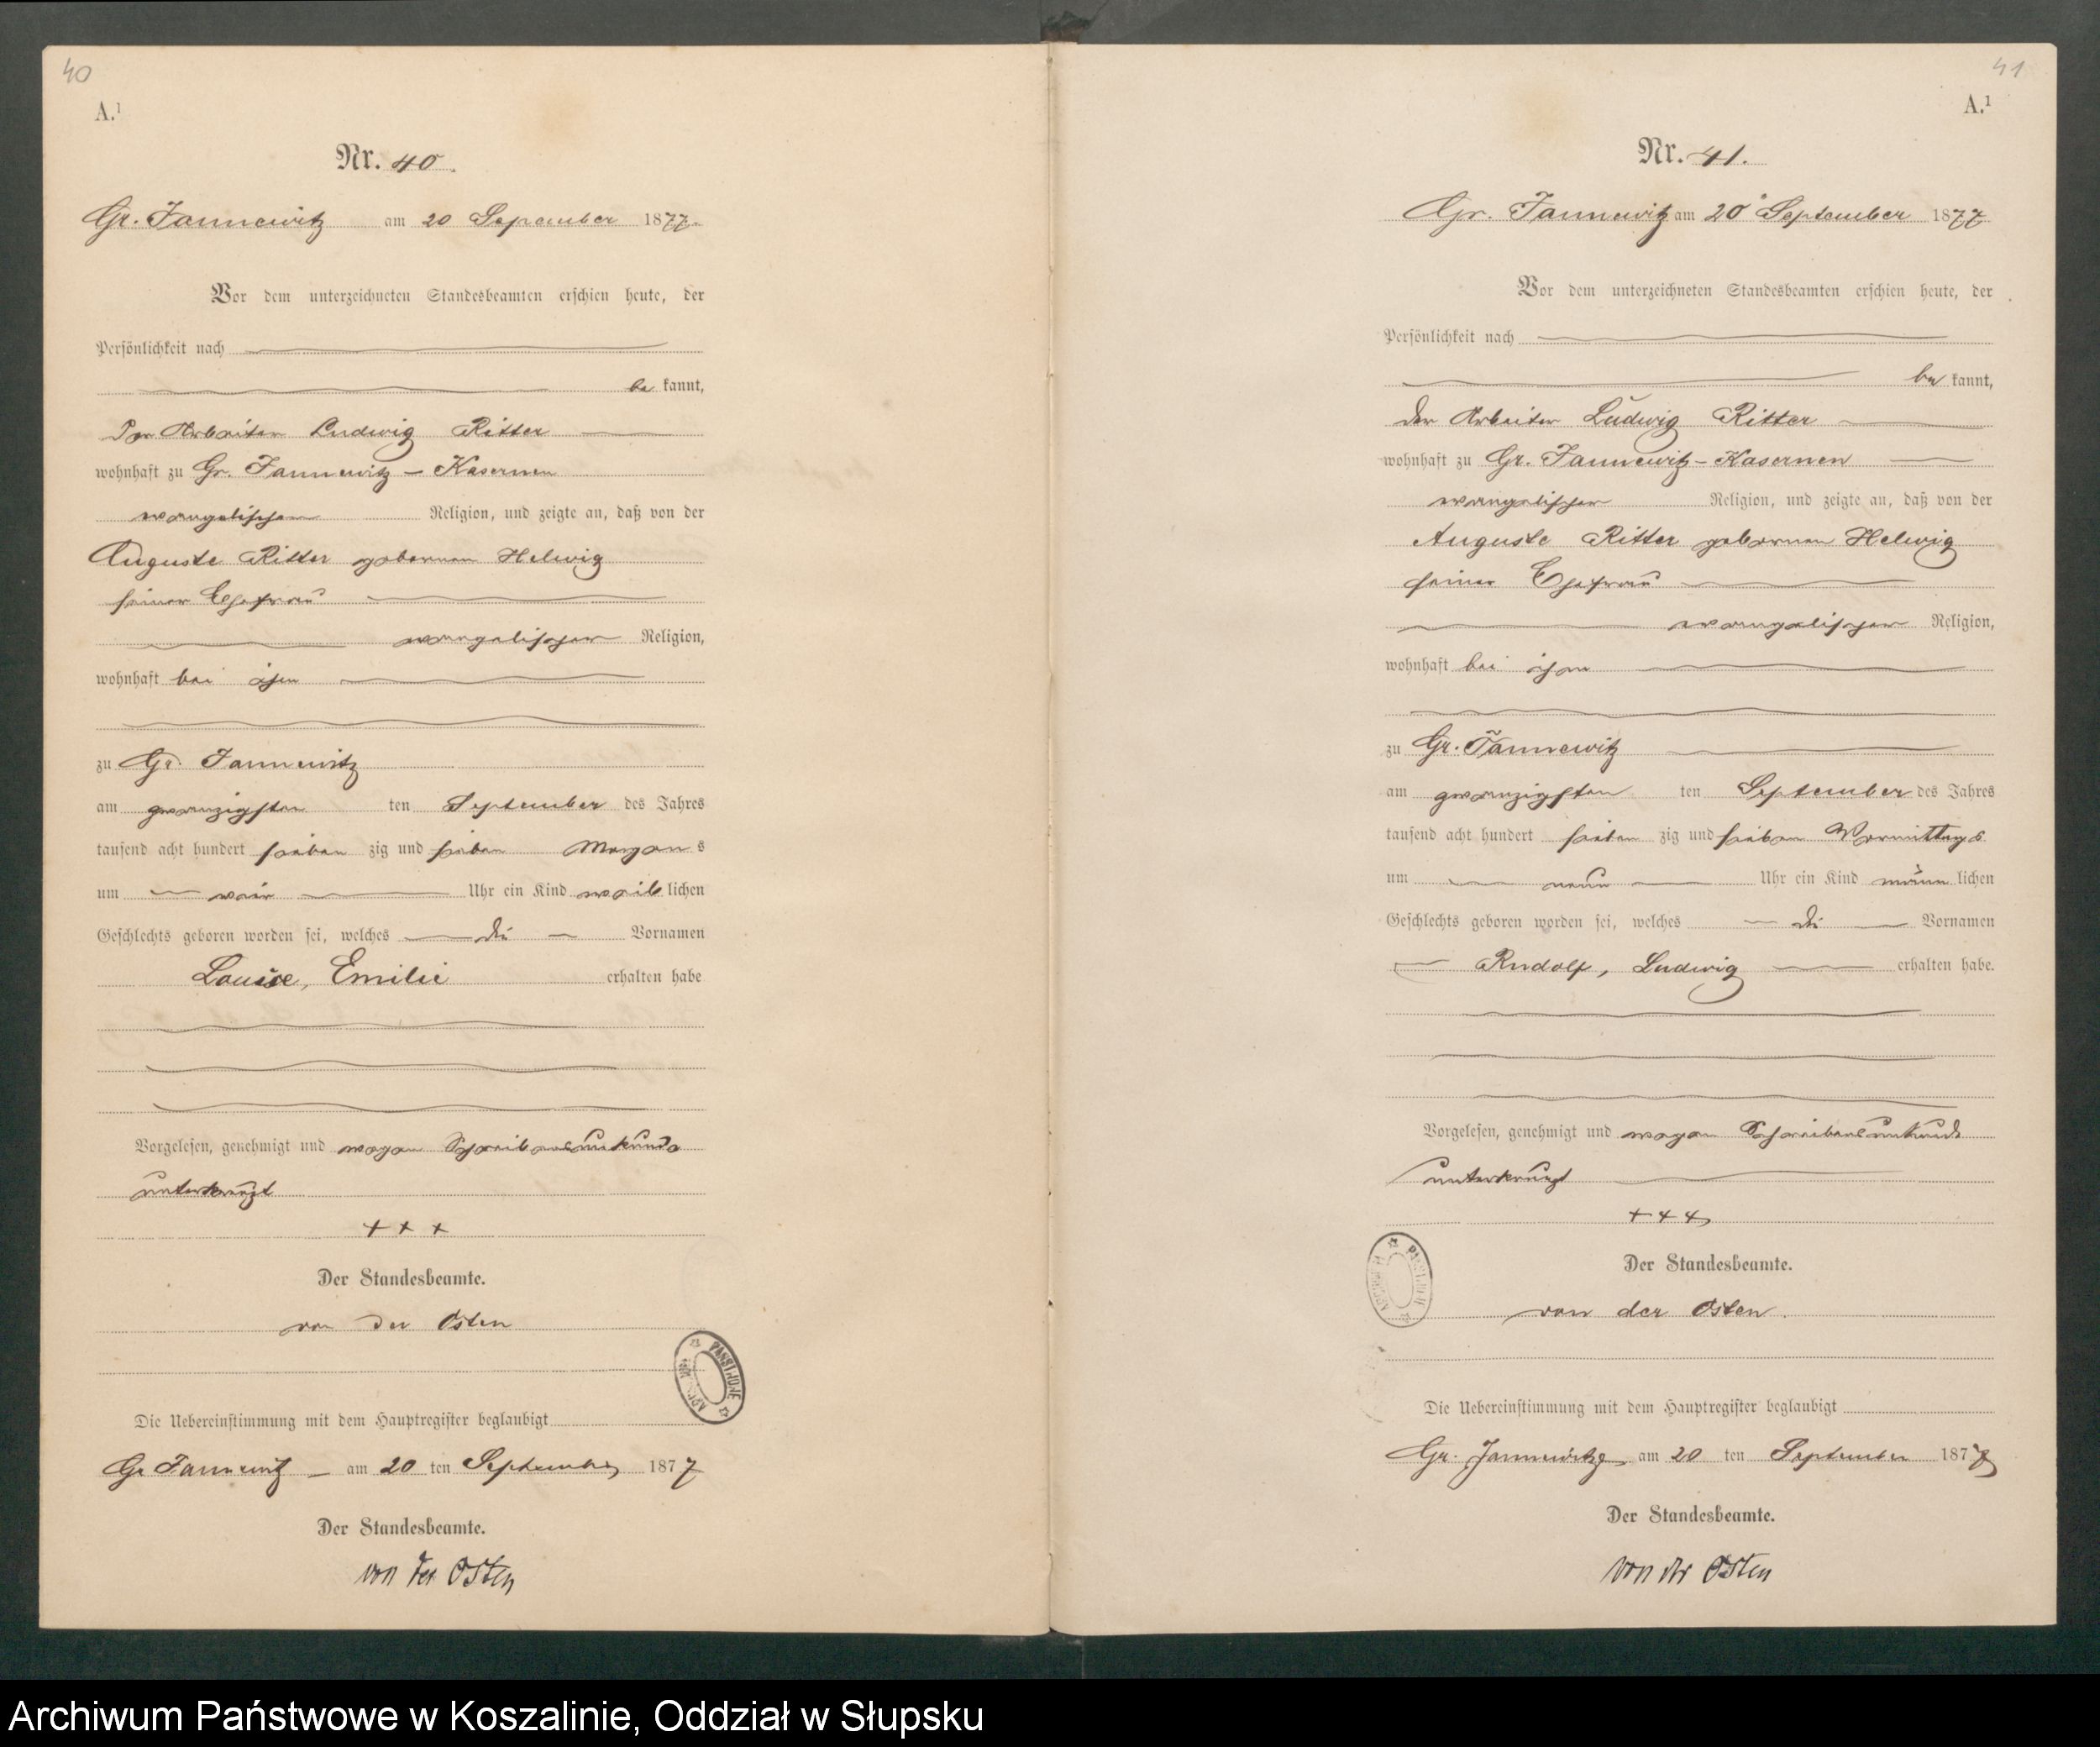 40
A.¹
Nr. 40.
Gr. Jannewitz am 20 September 1877.
Vor dem unterzeichneten Standesbeamten erschien heute, der
Persönlichkeit nach
be kannt,
Der Arbeiter Ludwig Ritter
wohnhaft zu Gr. Jannewitz – Kasernen
evangelischer Religion, und zeigte an, daß von der
Auguste Ritter geborenen Helwig
seiner Ehefrau
evangelischer Religion,
wohnhaft bei ihm
zu Gr. Jannewitz
am zwanzigsten ten September des Jahres
tausend acht hundert sieben zig und sieben Morgens
um Uhr ein Kind weib lichen
Geschlechts geboren worden sei, welches die Vornamen
Louise, Emilie erhalten habe
Vorgelesen, genehmigt und wegen Schreibensunkunde
unterkreuzt
+ + +
Der Standesbeamte.
von der Osten
Die Uebereinstimmung mit dem Hauptregister beglaubigt
Gr Jannewitz – am 20 ten September 1877
Der Standesbeamte.
von der Osten
41
A.¹
Nr. 41.
Gr. Jannewitz am 20 September 1877
Vor dem unterzeichneten Standesbeamten erschien heute, der
Persönlichkeit nach
be kannt,
der Arbeiter Ludwig Ritter
wohnhaft zu Gr. Jannewitz – Kasernen
evangelischer Religion, und zeigte an, daß von der
Auguste Ritter geborenen Helwig
seiner Ehefrau
evangelischer Religion,
wohnhaft bei ihm
zu Gr. Jannewitz
am zwanzigsten ten September des Jahres
tausend acht hundert sieben zig und sieben Vormittags
um neun Uhr ein Kind männ lichen
Geschlechts geboren worden sei, welches die Vornamen
Rudolf, Ludwig erhalten habe.
Vorgelesen, genehmigt und wegen Schreibensunkunde
unterkreuzt
+ + +
Der Standesbeamte.
von der Osten.
Die Uebereinstimmung mit dem Hauptregister beglaubigt
Gr. Jannewitz am 20 ten September 1877
Der Standesbeamte.
von der Osten
Archiwum Państwowe w Koszalinie, Oddział w Słupsku